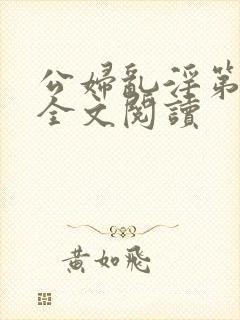 公婦亂淫第
全文閱讀
黃如飛